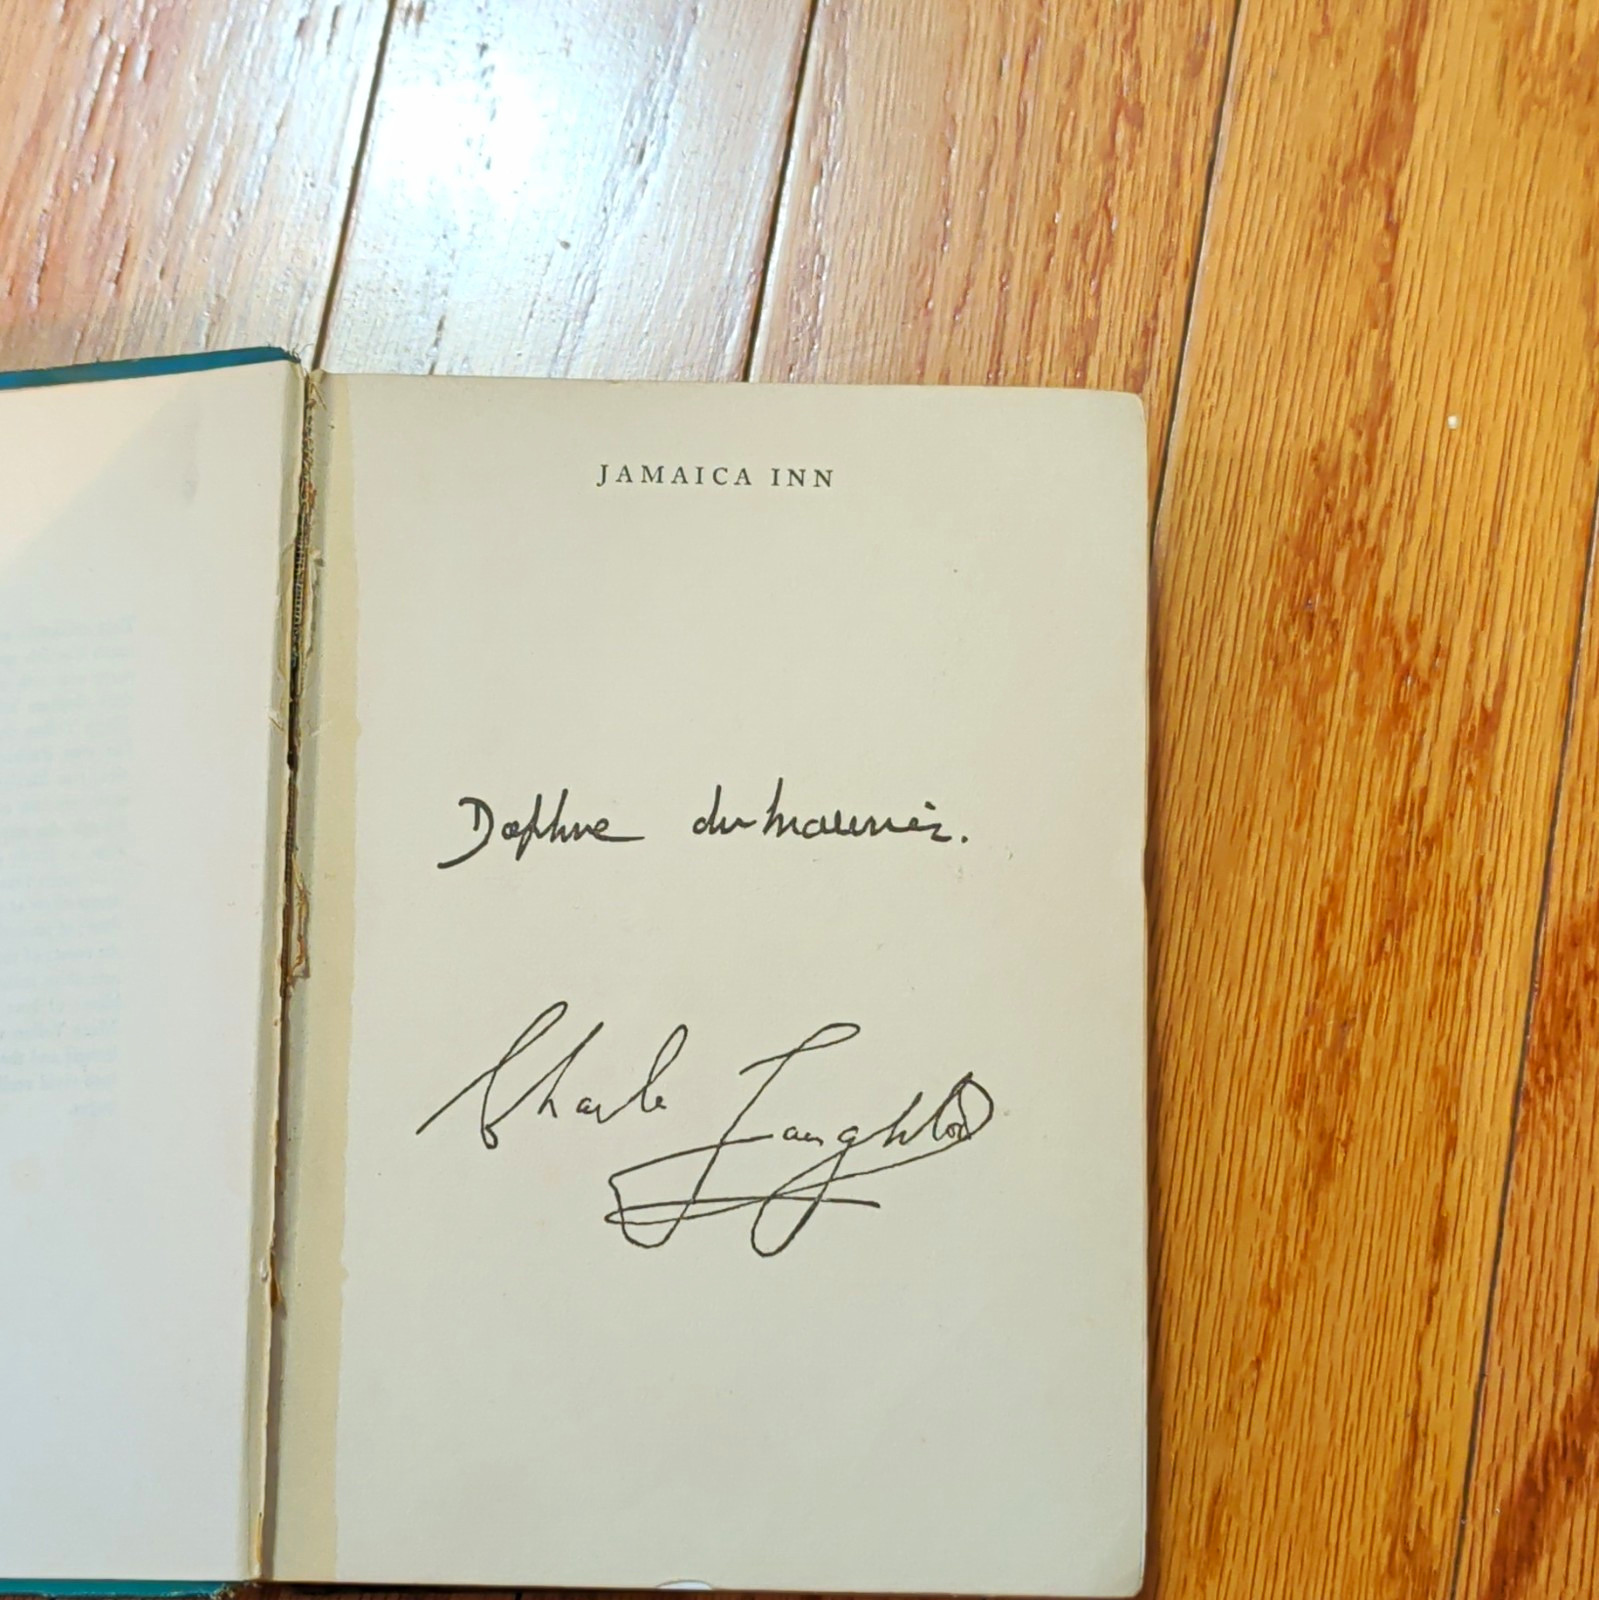 JAMAICA INN
Daphne du Maurier.
Charles Laughton